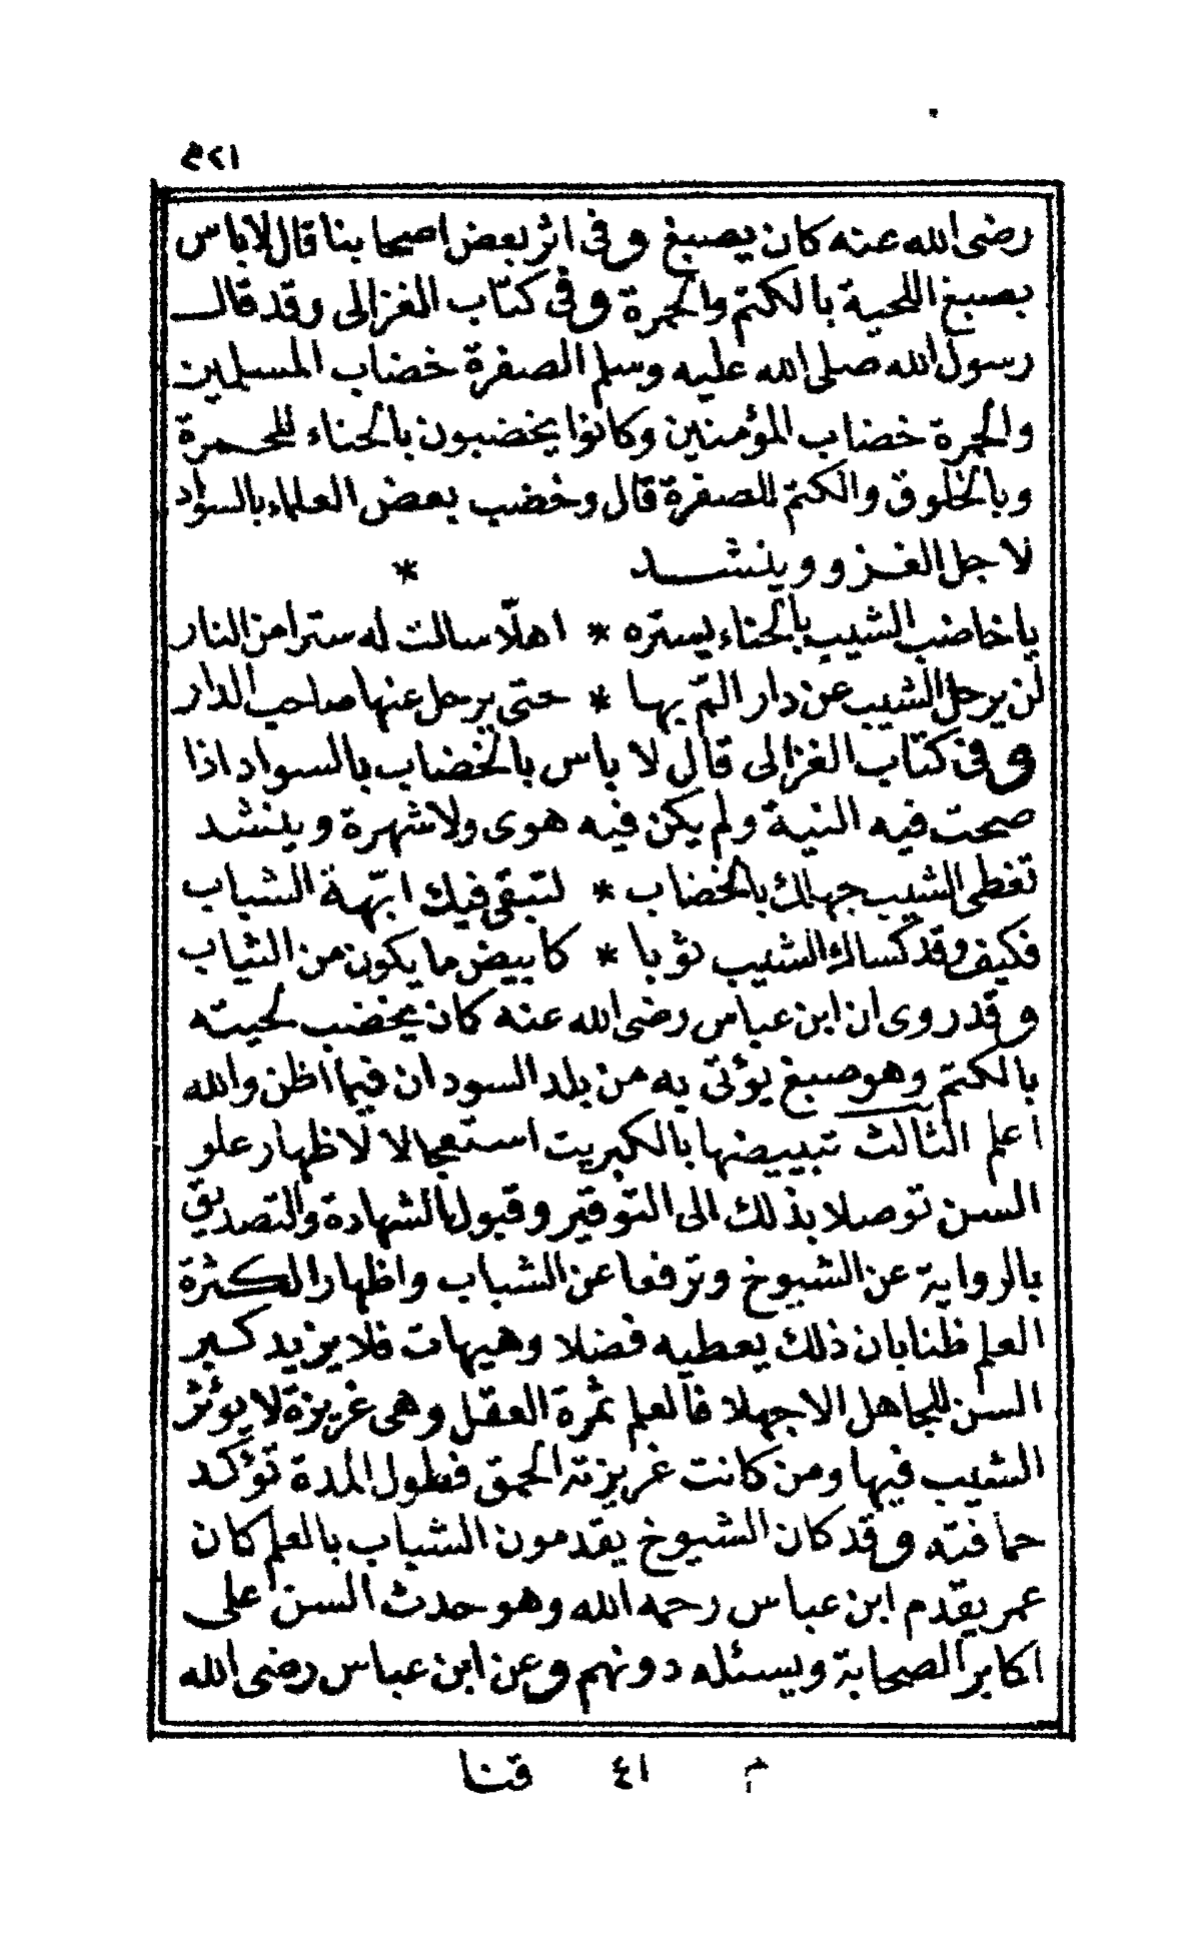 ٣٢١
رضى الله عنه كان يصبغ وفى اثر بعض اصحابنا قال لاباس
بصبغ اللحية بالكتم والحمرة وفى كتاب الغزالى وقد قال
رسول الله صلى الله عليه وسلم الصفرة خضاب المسلمين
والحمرة خضاب المؤمنين وكانوا يخضبون بالحناء للحمرة
وبالخلوق والكتم للصفرة قال وخضب بعض العلماء بالسواد
لاجل الغزو وينشد *
ياخاضب الشيب بالحناء يستره * اهلّا سالت له سترا من النار
لن يرحل الشيب عن دار المّ بها * حتى يرحل عنها صاحب الدار
وفى كتاب الغزالى قال لا باس بالخضاب بالسواد اذا
صحت فيه النية ولم يكن فيه هوى ولاشهرة وينشد
تغطى الشيب جهلك بالخضاب * لتبقى فيك ابّهة الشباب
فكيف وقد كساك الشيب ثوبا * كابيض ما يكون من الثياب
وقد روى ان ابن عباس رضى الله عنه كان يخضب لحيته
بالكتم وهو صبغ يؤتى به من بلد السودان فيما اظن والله
اعلم الثالث تبييضها بالكبريت استعجالا لاظهار علو
السن توصلا بذلك الى التوقير وقبول الشهادة والتصديق
بالرواية عن الشيوخ وترفعا عن الشباب واظهارا لكثرة
العلم ظنا بان ذلك يعطيه فضلا وهيهات فلا يزيد كبر
السن للجاهل الا جهلا فالعلم ثمرة العقل وهى غريزة لا يوثر
الشيب فيها ومن كانت غريزته الحمق فطول المدة تؤكد
حماقته وقد كان الشيوخ يقدمون الشباب بالعلم كان
عمر يقدم ابن عباس رحمه الله وهو حدث السن على
اكابر الصحابة ويسئله دونهم وعن ابن عباس رضى الله
م ٤١ قنا